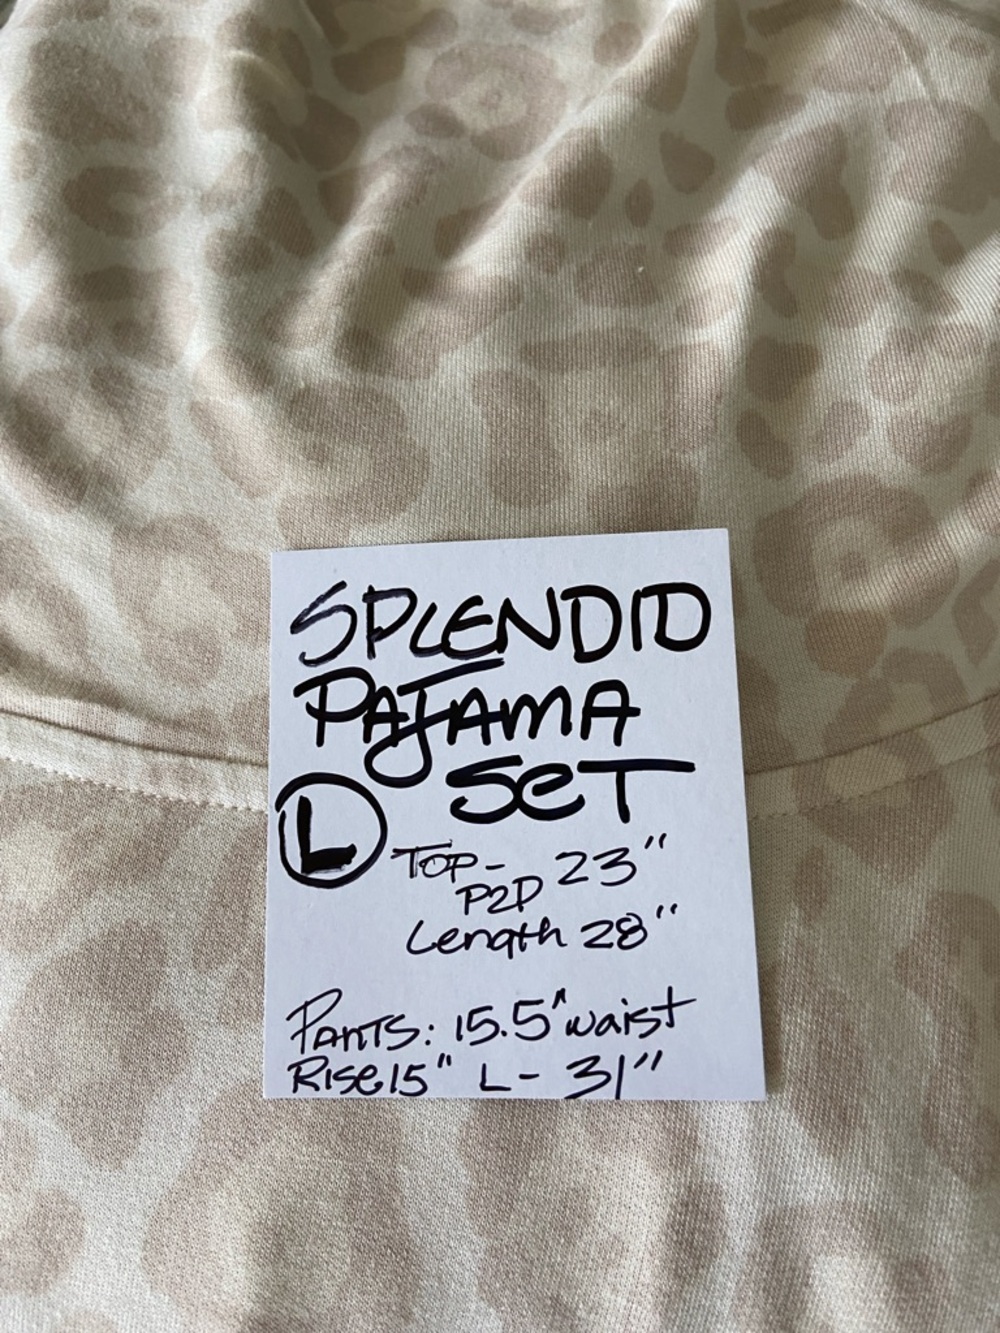 SPLENDID
PAJAMA
SET
L
TOP- 23"
P2P
Length 28"
PANTS: 15.5" waist
Rise 15" L- 31"